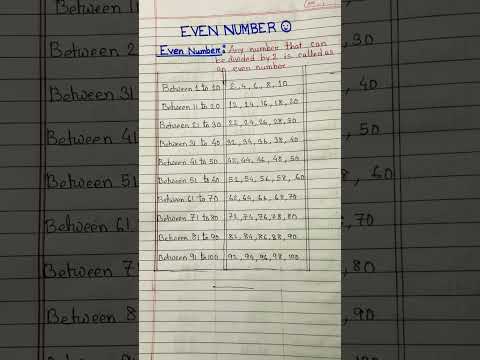 EVEN NUMBER
Even Number: Any number that can
be divided by 2 is called as
an even number
Between 1 to 10 2, 4, 6, 8, 10
Between 11 to 20 12, 14, 16, 18, 20
Between 21 to 30 22, 24, 26, 28, 30
Between 31 to 40 32, 34, 36, 38, 40
Between 41 to 50 42, 44, 46, 48, 50
Between 51 to 60 52, 54, 56, 58, 60
Between 61 to 70 62, 64, 66, 68, 70
Between 71 to 80 72, 74, 76, 78, 80
Between 81 to 90 82, 84, 86, 88, 90
Between 91 to 100 92, 94, 96, 98, 100